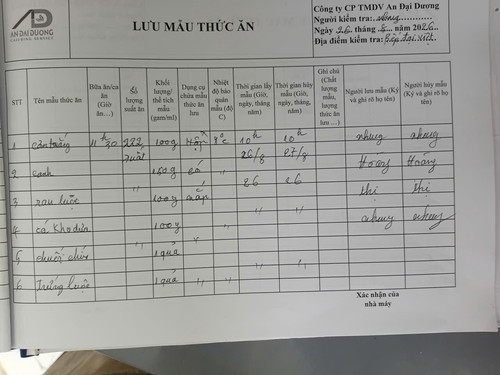 AD
AN DAI DUONG
LƯU MẪU THỨC ĂN
Công ty CP TMDV An Đại Dương
Người kiểm tra: nhung
Ngày 26 tháng 8 năm 2026
Địa điểm kiểm tra:
STT
Tên mẫu thức ăn
Bữa ăn/ca ăn (Giờ ăn....)
Số lượng suất ăn
Khối lượng/ thể tích mẫu (gam/ml)
Dụng cụ chứa mẫu thức ăn lưu
Nhiệt độ bảo quản mẫu (độ C)
Thời gian lấy mẫu (Giờ, ngày, tháng, năm)
Thời gian hủy mẫu (Giờ, ngày, tháng, năm)
Ghi chú (Chất lượng mẫu, lượng thức ăn lưu ....)
Người lưu mẫu (Ký và ghi rõ họ tên)
Người hủy mẫu (Ký và ghi rõ họ tên)
1 cơm trắng 11h30 272 suất 100g Hộp 10h 26/8 10h 27/8 nhung nhung
2 canh 150g có 26 26 Hoàng Hoàng
3 rau luộc 100g nắp thị thị
4 cá kho dưa 100g nhung nhung
5 chuối chín 1 quả
6 Trứng luộc 1 quả
Xác nhận của
nhà máy